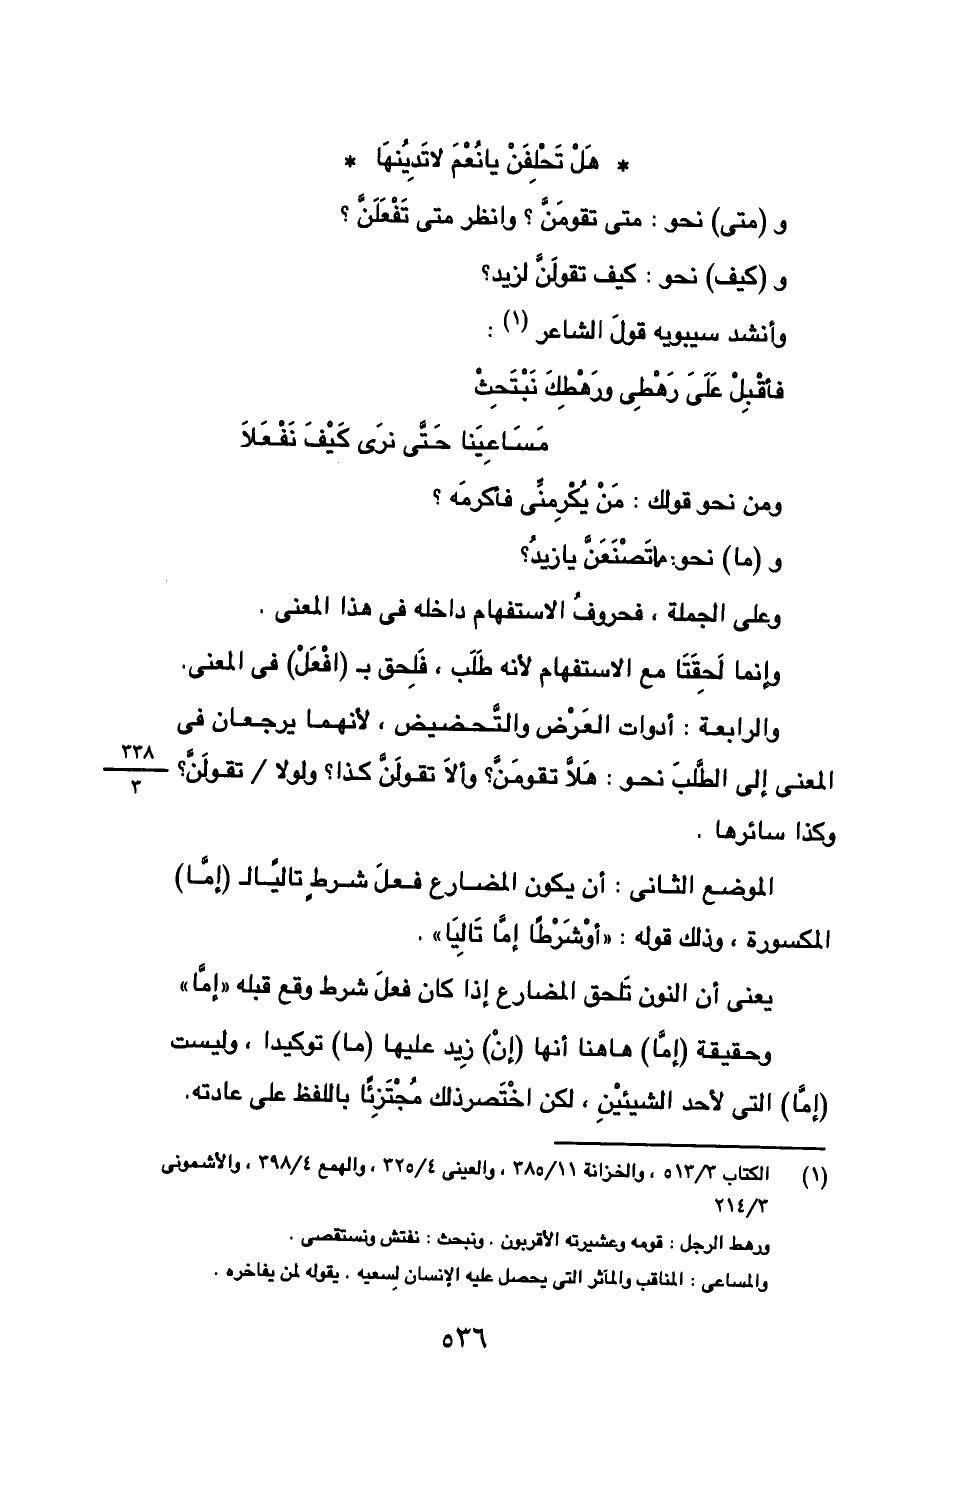 * هَلْ تَحْلِفَنْ يانُعْمَ لاتَدِيُنهَا *
و (متى) نحو : متى تقومَنَّ ؟ وانظر متى تَفْعَلَنَّ ؟
و (كيف) نحو : كيف تقولَنَّ لزيد؟
وأنشد سيبويه قولَ الشاعر (١) :
فأقْبِلْ عَلَىَ رَهْطِى ورَهْطِكَ نَبْتَحِثْ
مَسَاعِيَنا حَتَّى نرَى كَيْفَ نَفْعَلاَ
ومن نحو قولك : مَنْ يُكْرِمنَّى فأكرمَه ؟
و (ما) نحو: ماتَصْنَعَنَّ يازيدُ؟
وعلى الجملة ، فحروفُ الاستفهام داخله فى هذا المعنى .
وإنما لَحِقَتَا مع الاستفهام لأنه طَلَب ، فَلَحِق بـ (افْعَلْ) فى المعنى.
والرابعة : أدوات العَرْض والتَّحضيض ، لأنهما يرجعان فى
المعنى إلى الطَّلبَ نحو : هَلاَّ تقومَنَّ؟ وألاَ تقولَنَّ كذا؟ ولولا / تقولَنَّ؟ ٣٣٨/٣
وكذا سائرها .
الموضع الثانى : أن يكون المضارع فعلَ شرطٍ تاليًالـ (إمَّا)
المكسورة ، وذلك قوله : «أوْشَرْطًا إمَّا تَالِيَا» .
يعنى أن النون تَلحق المضارع إذا كان فعلَ شرط وقع قبله «إمَّا»
وحقيقة (إمَّا) هاهنا أنها (إنْ) زِيد عليها (ما) توكيدا ، وليست
(إمَّا) التى لأحد الشيئيْنِ ، لكن اخْتَصرذلك مُجْتَزِئًا باللفظ على عادته.
(١) الكتاب ٥١٣/٣ ، والخزانة ٣٨٥/١١ ، والعينى ٣٢٥/٤ ، والهمع ٣٩٨/٤ ، والأشمونى
٢١٤/٣
ورهط الرجل : قومه وعشيرته الأقربون . ونبحث : نفتش ونستقصى .
والمساعى : المناقب والمآثر التى يحصل عليه الإنسان لِسعيه . يقوله لمن يفاخره .
٥٣٦